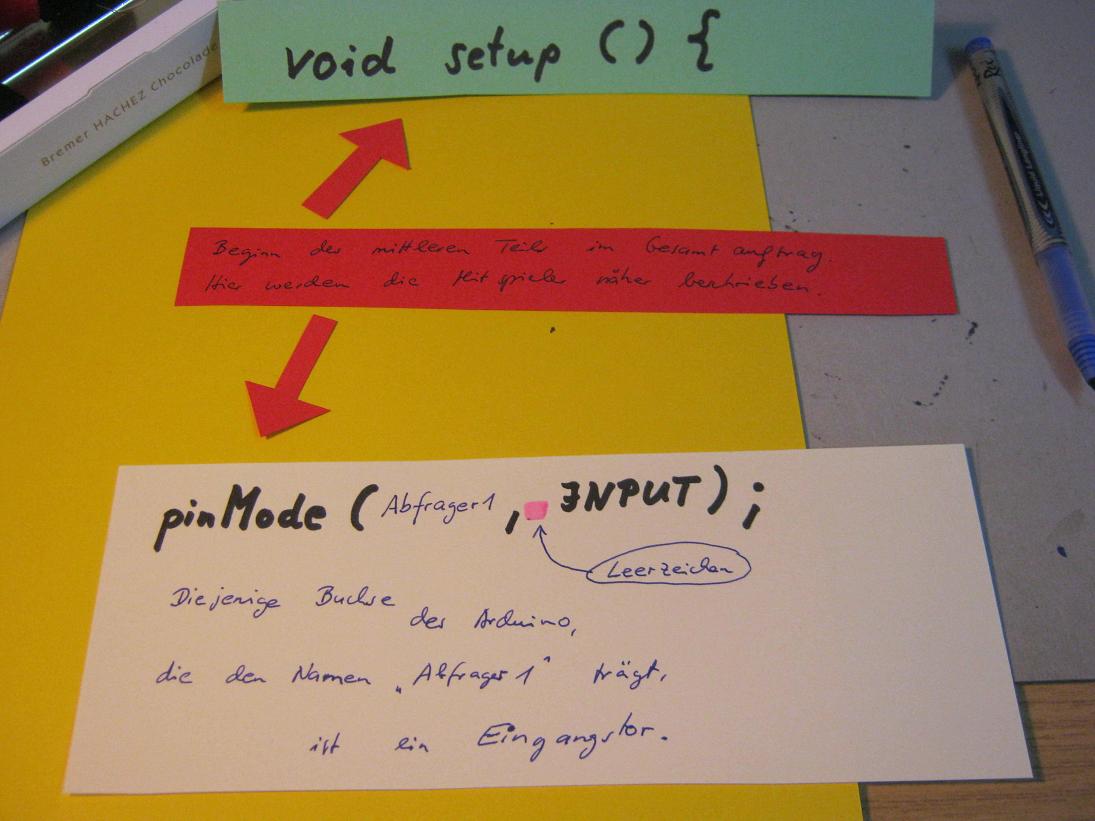 void setup () {
Bremer HACHEZ Chocolade
Beginn des mittleren Teils im Gesamtauftrag.
Hier werden die Mitspieler näher beschrieben.
pinMode (Abfrager1, INPUT);
Leerzeichen
Diejenige Buchse des Arduino,
die den Namen „Abfrager 1" trägt,
ist ein Eingangstor.